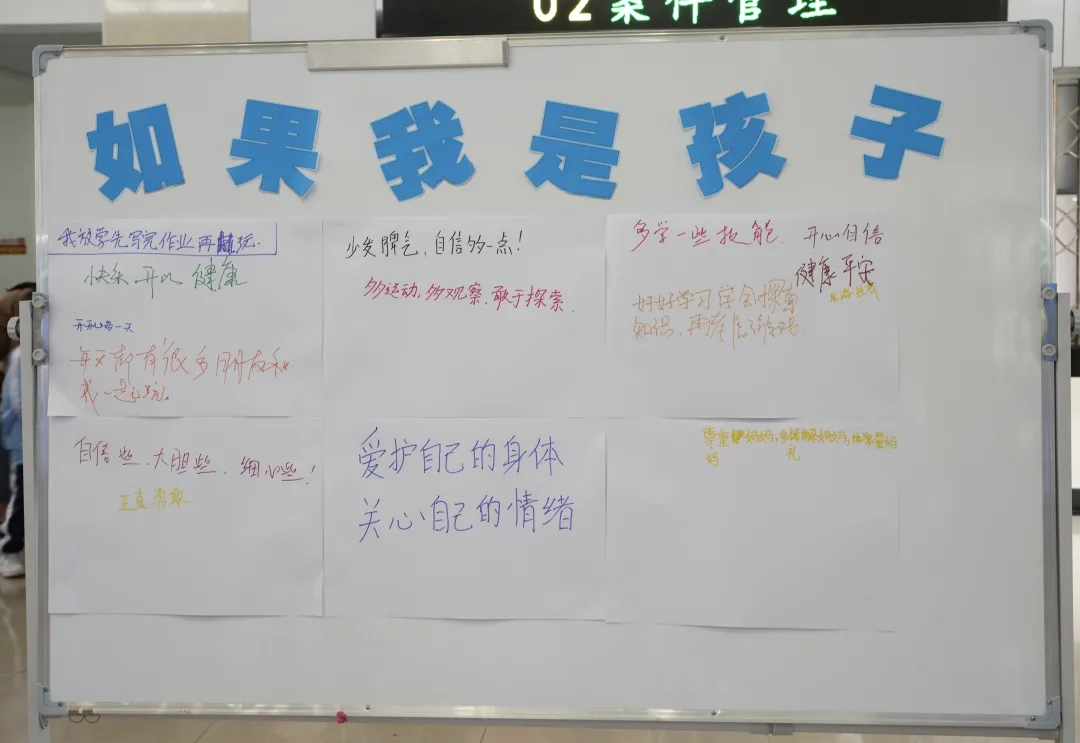 02案件管理
如果我是孩子
我放学先写完作业再玩.
快乐 开心 健康
开开心心每一天
每天都有很多朋友和
我一起玩。
少发脾气,自信多一点!
多运动,多观察,敢于探索.
多学一些技能. 开心自信
健康平安
好好学习 学会探索
知识,
自信些、大胆些,细心些!
正直勇敢
爱护自己的身体
关心自己的情绪
尊重妈妈,多体解妈妈,
妈 礼